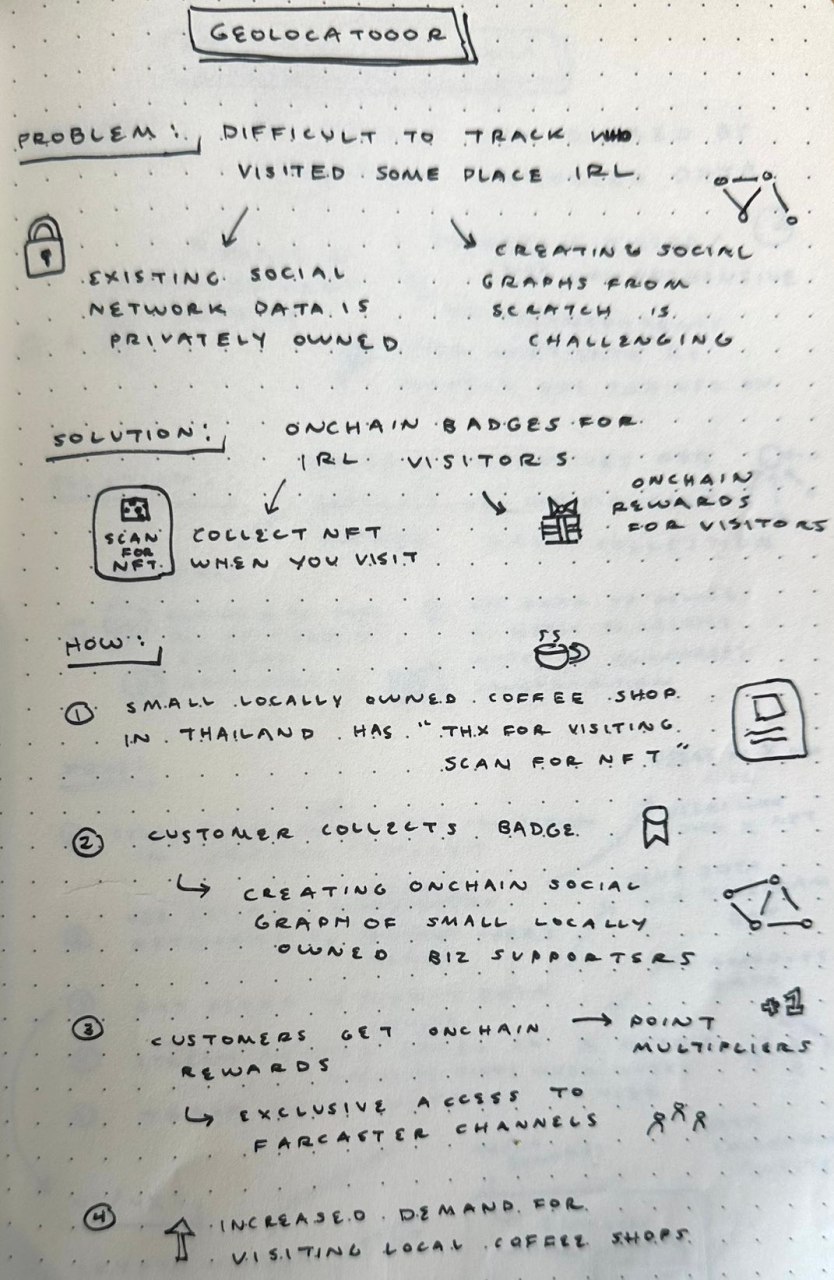 GEOLOCATOOOR
PROBLEM: DIFFICULT TO TRACK WHO
VISITED SOME PLACE IRL
EXISTING SOCIAL
NETWORK DATA IS
PRIVATELY OWNED
CREATING SOCIAL
GRAPHS FROM
SCRATCH IS
CHALLENGING
SOLUTION: ONCHAIN BADGES FOR
IRL VISITORS
SCAN
FOR
NFT
COLLECT NFT
WHEN YOU VISIT
ONCHAIN
REWARDS
FOR VISITORS
HOW:
① SMALL LOCALLY OWNED COFFEE SHOP
IN THAILAND HAS "THX FOR VISITING
SCAN FOR NFT"
② CUSTOMER COLLECTS BADGE
↳ CREATING ONCHAIN SOCIAL
GRAPH OF SMALL LOCALLY
OWNED BIZ SUPPORTERS
③ CUSTOMERS GET ONCHAIN
REWARDS
→ POINT
MULTIPLIERS
+1
↳ EXCLUSIVE ACCESS TO
FARCASTER CHANNELS
④ INCREASED DEMAND FOR
VISITING LOCAL COFFEE SHOPS